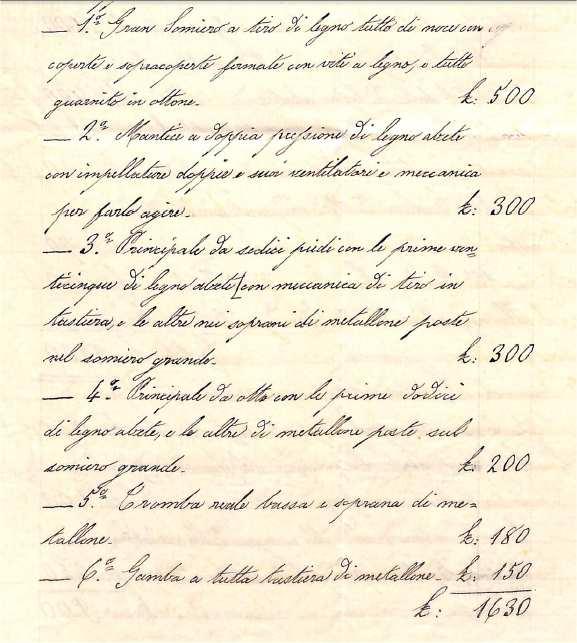 — 1.ª Gran Somiere a tiro di legno tutto di noce con
coperte e sopracoperte fermate con vite a legno, e tutte
guarnito in ottone. £: 500
— 2.ª Mantice a doppia pressione di legno abete
con impellature doppie e suoi ventilatori e meccanica
per farlo agire. £: 300
— 3.ª Principale da sedici piedi con le prime ven=
ticinque di legno abete [con meccanica di tiro in
tastiera, e le altre nei soprani di metallone poste
nel somiero grande. £: 300
— 4.ª Principale da otto con le prime dodici
di legno abete, e le altre di metallone poste sul
somiero grande. £: 200
— 5.ª Tromba reale bassa e soprana di me=
tallone. £: 180
— 6.ª Gamba a tutta tastiera di metallone. £: 150
£: 1630